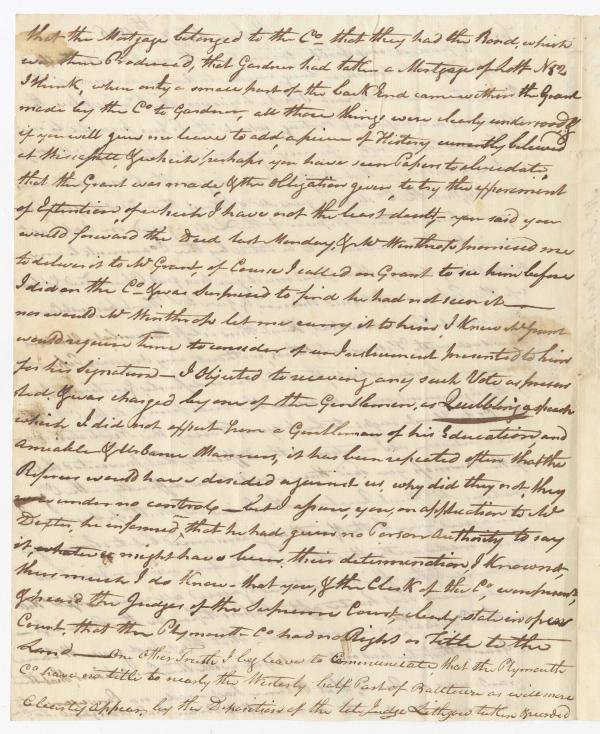 that the Mortgage belonged to the Co that they had the Bond, which
was then Produced, that Gardner had taken a Mortgage of Lott No 2
I think, when only a small part of the back End came within the Grant
made by the Co to Gardner, all those things were clearly understood, &
if you will give me leave to add, a piece of History currently believed
at Wiscassett, & which perhaps, you have seen Papers to elucidate,
that the Grant was made, & the obligation given, to try the
of of which I have not the least doubt— you said you
would forward the Deed last Monday, & Mr Winthrop promised me
to deliver it to Mr Grant of Course I called on Grant to see him before
I did on the Co & was surprised to find he had not seen it—
nor would Mr Winthrop let me carry it to him, I knew Mr Grant
would require time to consider of an Instrument presented to him
for his Signature— I Objected to receiving any such Vote as presen
ted, & was charged by one of the Gentlemen, as Quibbling a speech
which I did not expect from a Gentleman of his Education and
Amiable & Urbane Manners, it has been repeated often that the
Referees would have decided against us, why did they not, they
under no controle— but I assure, you, on application to Mr
Dexter, he informed, that he had given no Person Authority to say
it, whatever might have been, their determination I know not,
thus much I do know— that you, & the Clerk of the Co, were present,
& heard the Judges of the Supreme Court, clearly state in open
Court, that the Plymouth Co had no Right or Title to the
Land— One Other Truth I beg leave to Communicate, that the Plymouth
Co have no title to nearly the Westerly half Part of Balltown as will more
Clearly appear, by the Deposition of the late Judge Lithgow taken & recorded